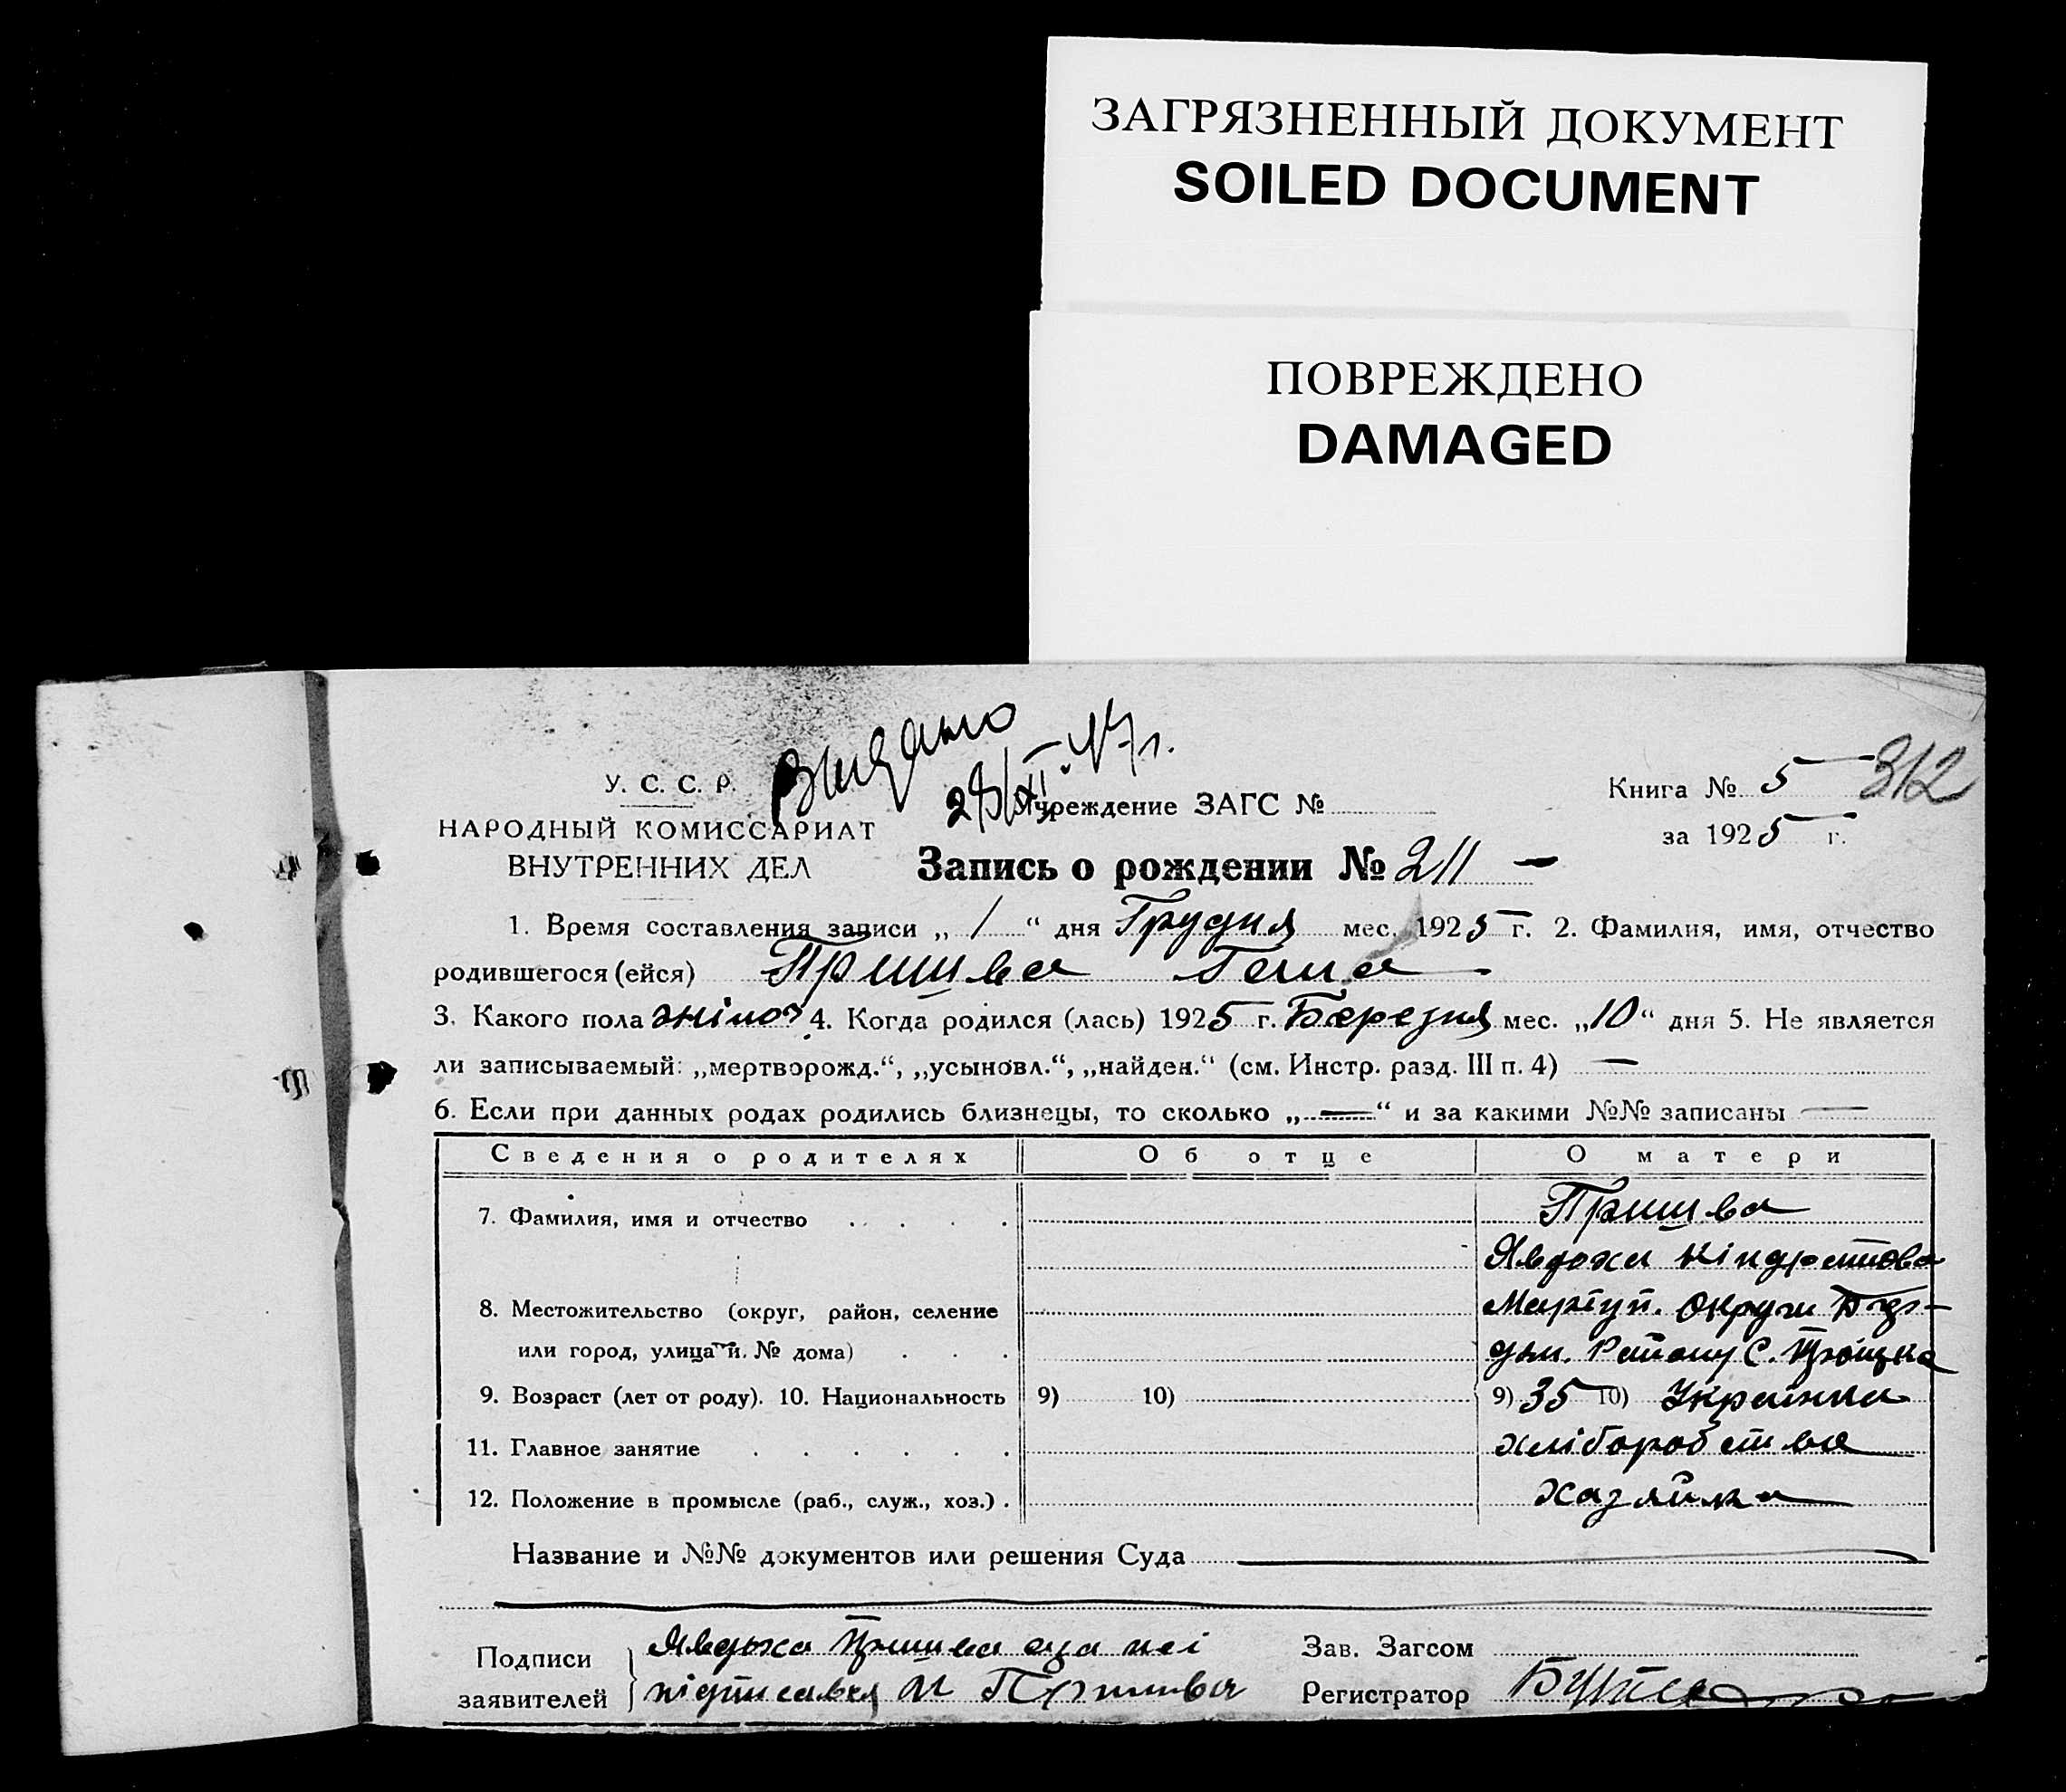 ЗАГРЯЗНЕННЫЙ ДОКУМЕНТ
SOILED DOCUMENT
ПОВРЕЖДЕНО
DAMAGED
У. С. С. Р.
НАРОДНЫЙ КОМИССАРИАТ
ВНУТРЕННИХ ДЕЛ
Видано
28/XII.47г.
Учреждение ЗАГС №
Книга № 5 312
за 1925 г.
Запись о рождении № 211 —
1. Время составления записи „ 1 “ дня Грудня мес. 1925 г. 2. Фамилия, имя, отчество
родившегося (ейся) Пришва Гаша
3. Какого пола жіноч 4. Когда родился (лась) 1925 г. Березня мес. „10“ дня 5. Не является
ли записываемый: „мертворожд.“, „усыновл.“, „найден.“ (см. Инстр. разд. III п. 4) —
6. Если при данных родах родились близнецы, то сколько „—“ и за какими №№ записаны —
Сведения о родителях Об отце О матери
7. Фамилия, имя и отчество Пришва
Явдоха Кіндратова
8. Местожительство (округ, район, селение Маріуп. Округи
или город, улица и № дома) Району С. Троїцка
9. Возраст (лет от роду). 10. Национальность 9) 10) 9) 35 10) Українка
11. Главное занятие хліборобства
12. Положение в промысле (раб., служ., хоз.) . хазяйка
Название и №№ документов или решения Суда
Подписи заявителей
Явдоха Пришва а за неі
підписався Пришва
Зав. Загсом
Регистратор